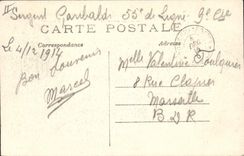 Sergent Garibaldi 55e de Ligne 9e Cie
CARTE POSTALE
Correspondance
Adresse
Le 4/12/1914
Bon Souvenir
Marcel
Melle Valentine
8 Rue Clapier
Marseille
B D R